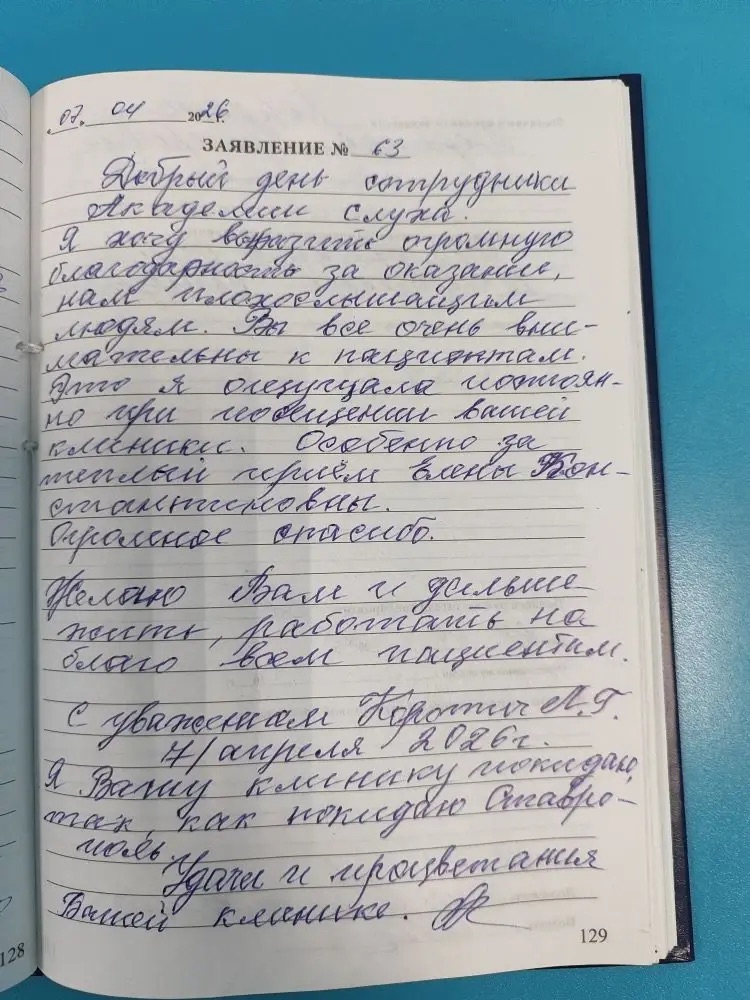 07 04 2026
ЗАЯВЛЕНИЕ № 63
Добрый день сотрудники
Академии слуха.
Я хочу выразить огромную
благодарность за оказании,
нам плохослышащим
людям. Вы все очень вни-
мательны к пациентам.
Это я ощущала постоян-
но при посещении вашей
клиники. Особенно за
теплый приём Елены Кон-
стантиновны.
Огромное спасибо.
Желаю Вам и дальше
жить, работать на
благо всем пациентам.
С уважением Коротич Л.Г.
7/апреля 2026г.
Я Вашу клинику покидаю,
так, как покидаю Ставро-
поль.
Удачи и процветания
Вашей клинике.
129
128